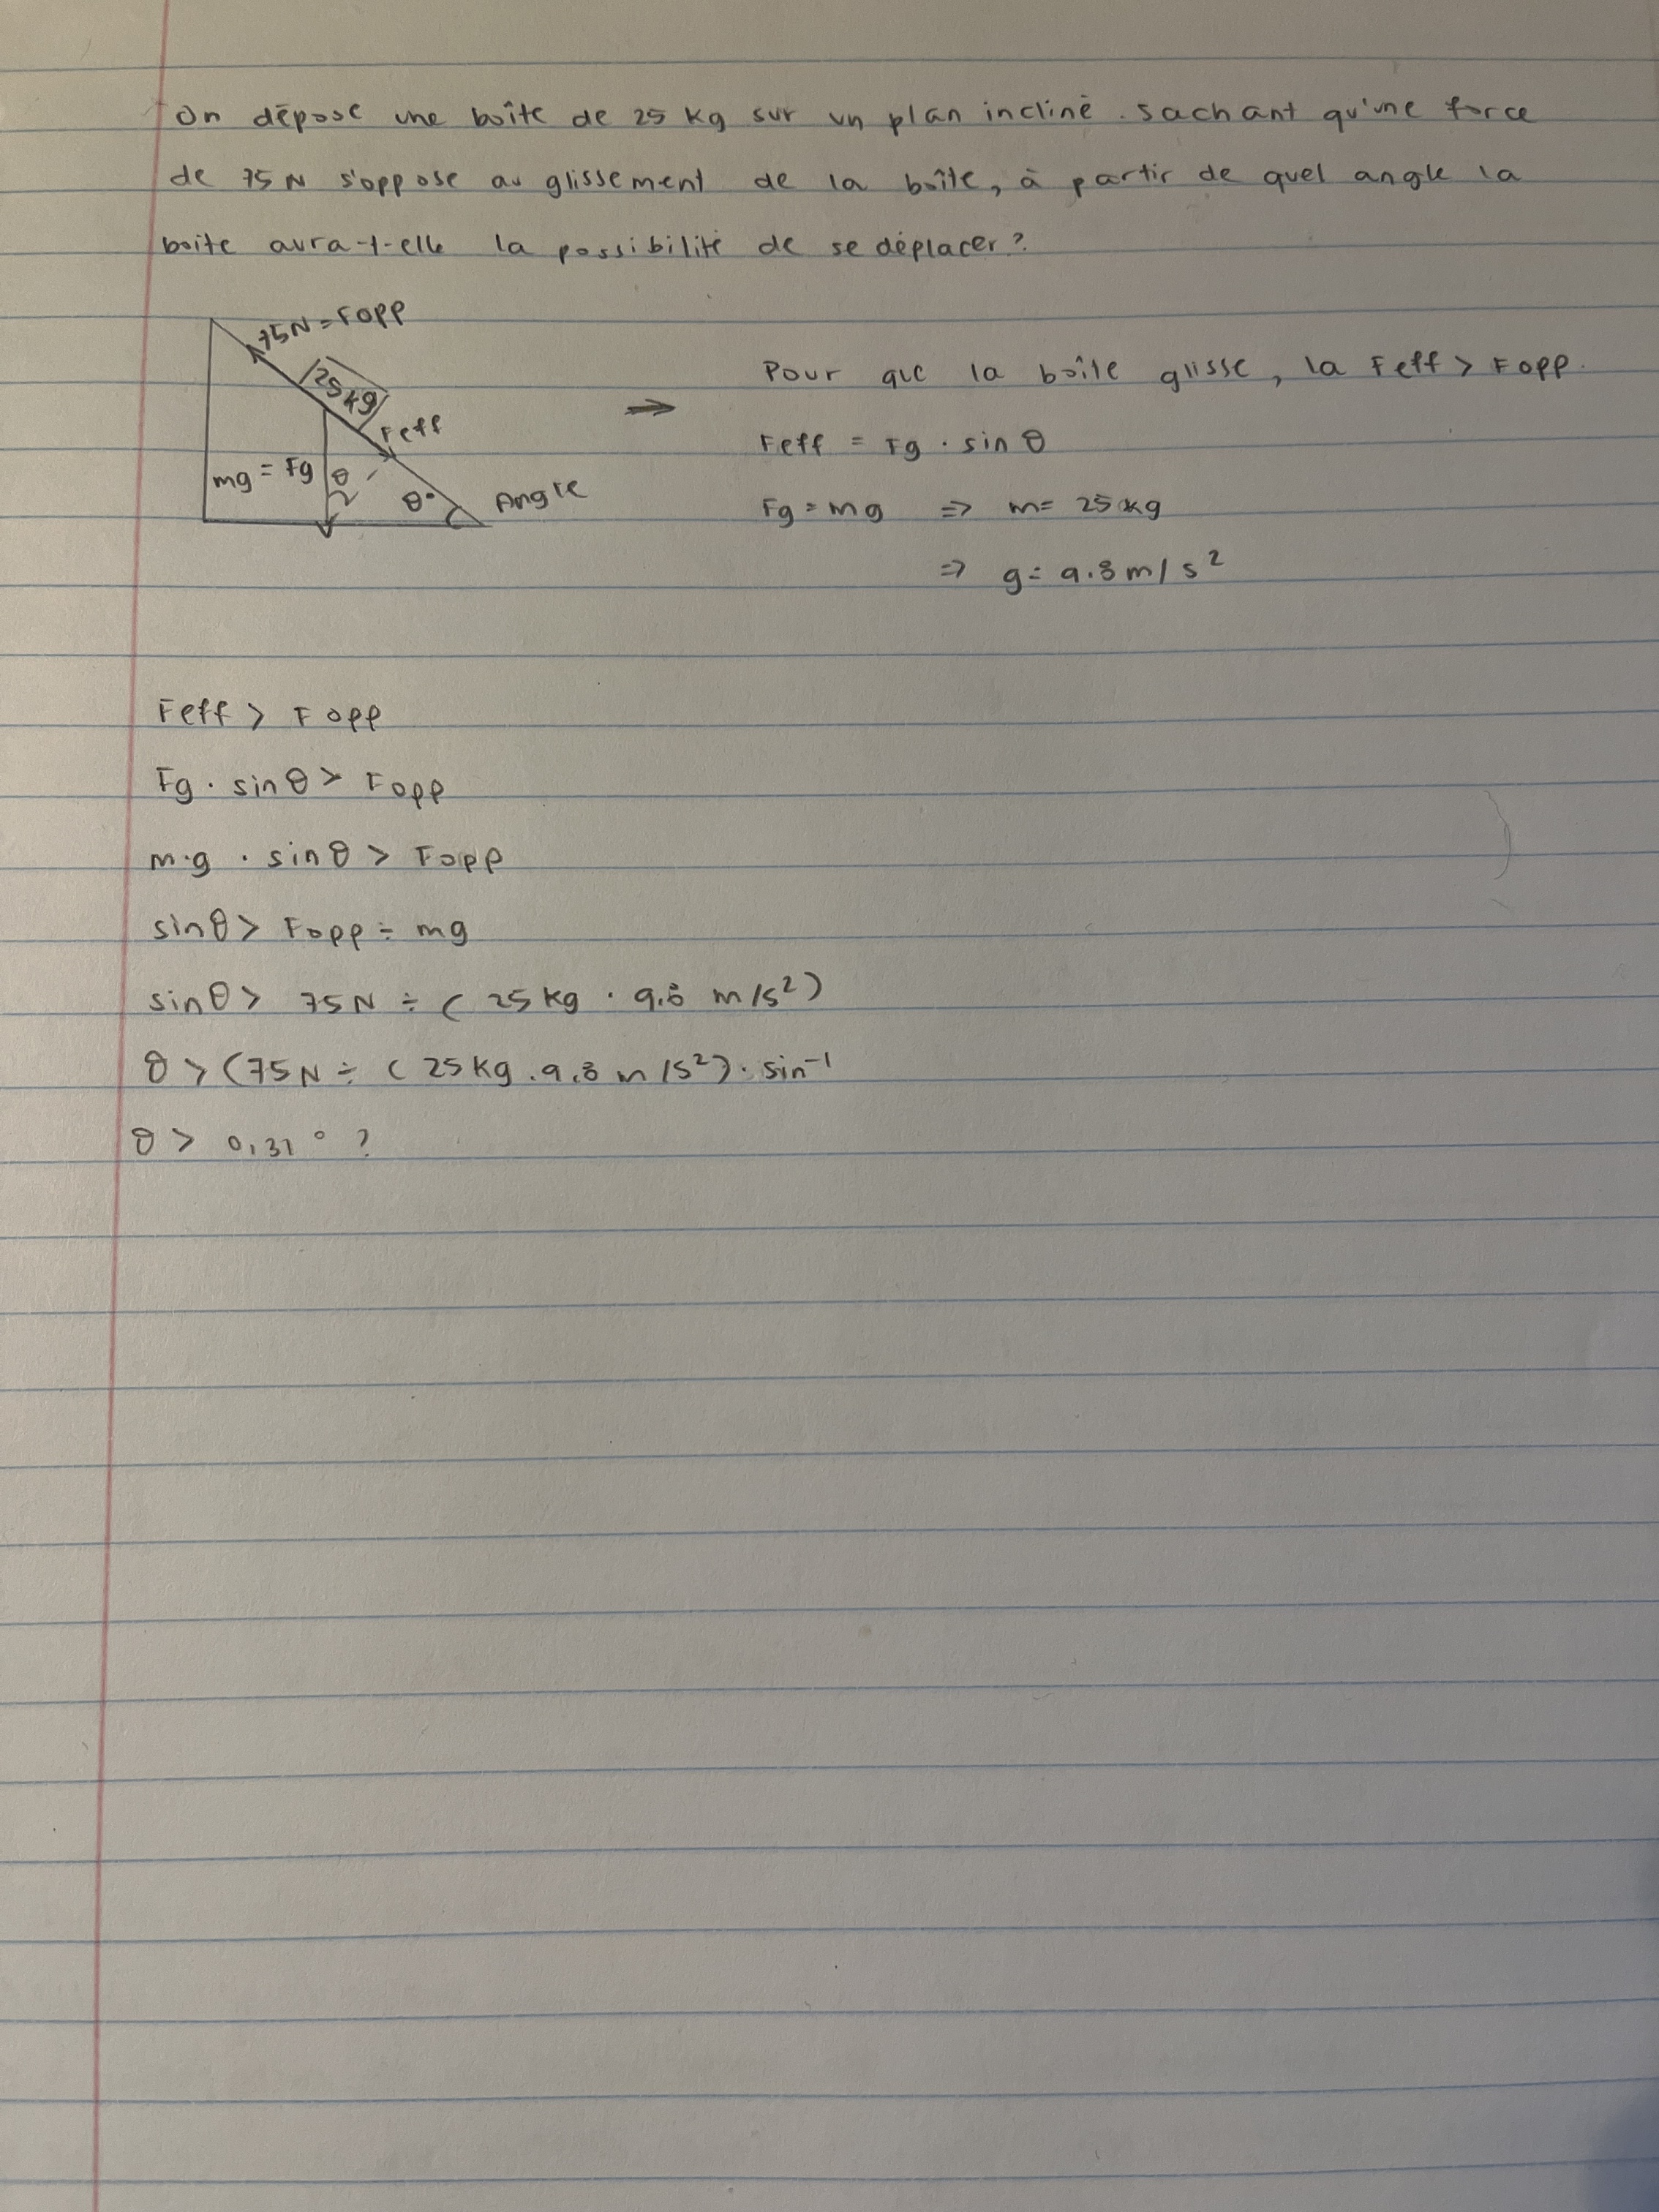 On dépose une boîte de 25 kg sur un plan incliné. Sachant qu'une force
de 75 N s'oppose au glissement de la boîte, à partir de quel angle la
boite aura-t-elle la possibilité de se déplacer?
75N = Fopp
25 kg
Feff
mg = Fg
θ
θ°
Angle
→ Pour que la boîte glisse, la Feff > Fopp.
Feff = Fg · sin θ
Fg = mg => m = 25 kg
=> g = 9.8 m/s²
Feff > Fopp
Fg · sin θ > Fopp
m·g · sin θ > Fopp
sin θ > Fopp ÷ mg
sin θ > 75N ÷ ( 25 kg · 9,8 m/s²)
θ > (75N ÷ ( 25 kg . 9,8 m/s²) · sin⁻¹
θ > 0,31° ?